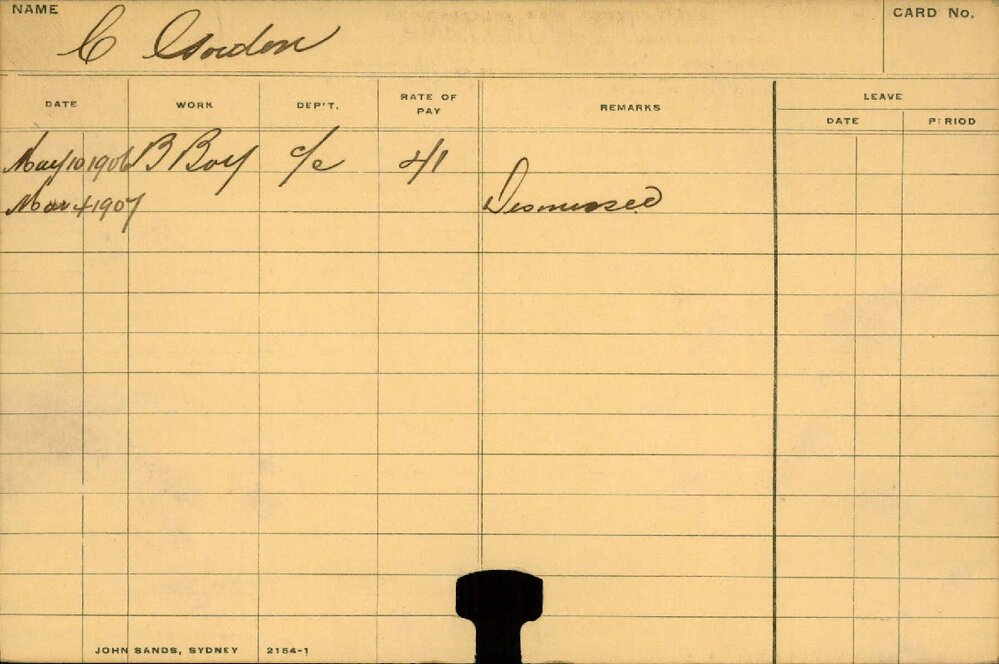 NAME
C Gordon
CARD No.
DATE WORK DEP'T. RATE OF PAY REMARKS LEAVE
DATE PERIOD
May 10 1906 B Boy c/c 4/1
Mar 4 1907 Dismissed
JOHN SANDS, SYDNEY 2154-1